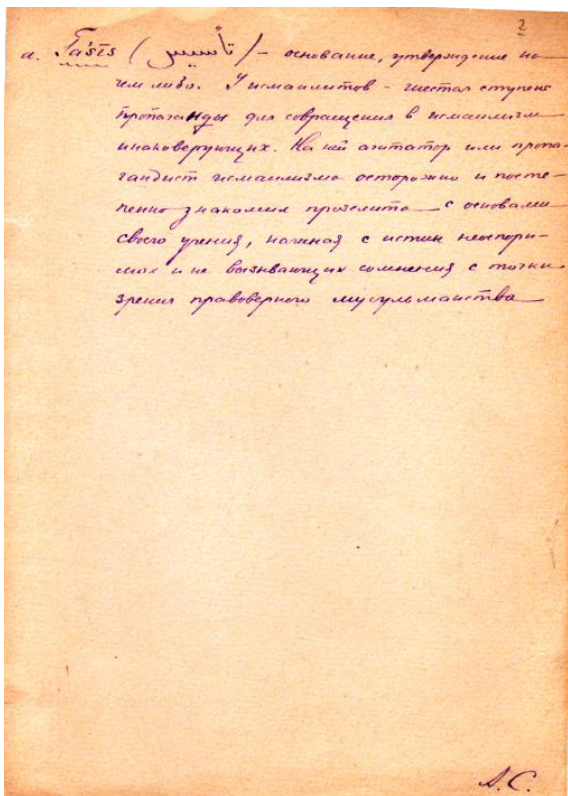 2
a. Ta'sīs (تأسيس) – основание, утверждение на
чем либо. У исмаилитов – шестая ступень
пропаганды для совращения в исмаилизм
инаковерующих. На ней агитатор или пропа-
гандист исмаилизма осторожно и посте-
пенно знакомил прозелита с основами
своего учения, начиная с истин неоспори-
мых и не вызывающих сомнения с точки
зрения правоверного мусульманства
А.С.